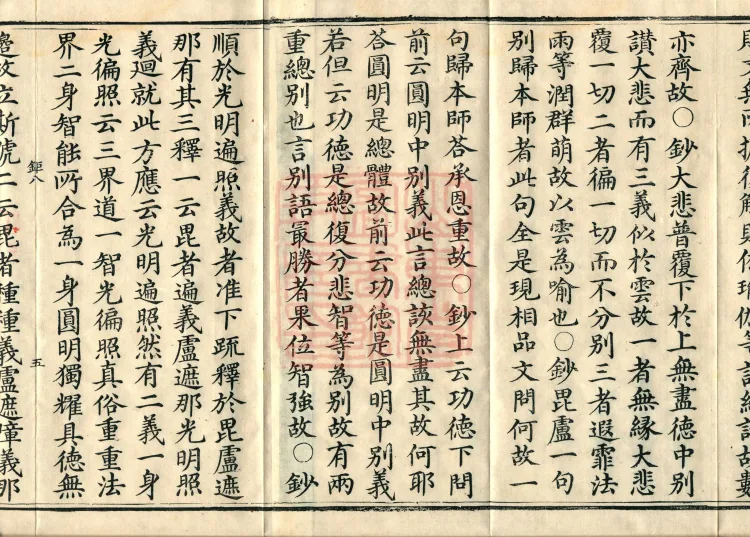 亦齊故○鈔大悲普覆下於上無盡德中別
讚大悲而有三義似於雲故一者無緣大悲
覆一切二者徧一切而不分別三者遐霏法
雨等潤群萌故以雲為喻也○鈔毘盧一句
別歸本師者此句全是現相品文問何故一
句歸本師荅承恩重故○鈔上云功德下問
前云圓明中別義此言總該無盡其故何耶
荅圓明是總體故前云功德是圓明中別義
若但云功德是總復分悲智等為別故有兩
重總別也言別語最勝者果位智強故○鈔
順於光明遍照義故者准下疏釋於毘盧遮
那有其三釋一云毘者遍義盧遮那光明照
義迴就此方應云光明遍照然有二義一身
光徧照云三界道一智光徧照真俗重重法
界二身智能所合為一身圓明獨耀具德無
鉅八
五
邊故立斯號二云毘者種種義盧遮障義那